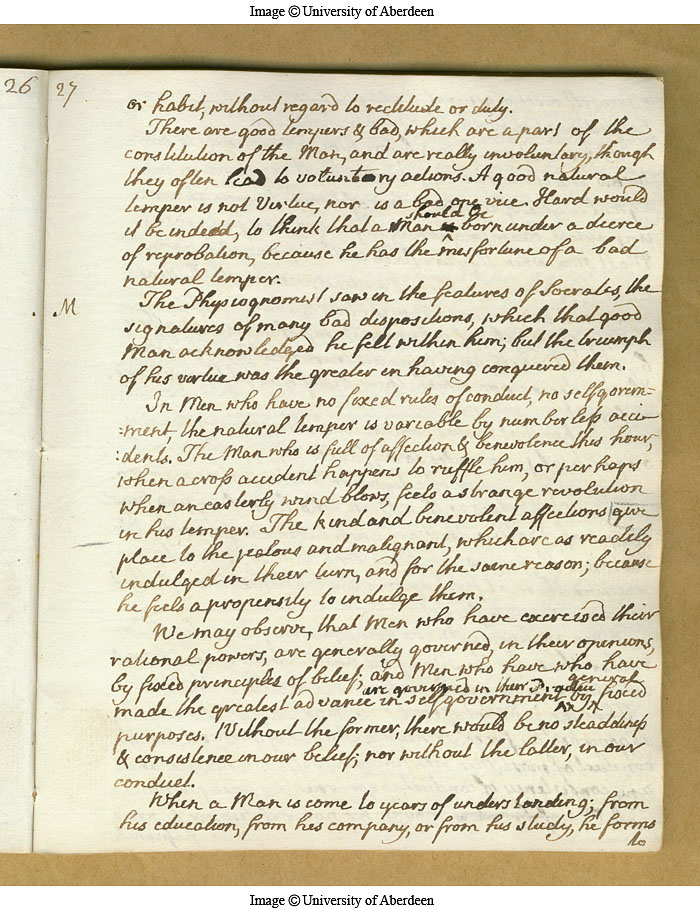 Image © University of Aberdeen
26 27
or habit, without regard to rectitude or duty.
There are good tempers & bad, which are a part of the
constitution of the Man, and are really involuntary, though
they often lead to voluntary actions. A good natural
temper is not Virtue, nor is a bad one vice. Hard would
should be
it be indeed, to think that a Man born under a decree
of reprobation, because he has the misfortune of a bad
natural temper.
M The Physiognomist saw in the features of Socrates, the
signatures of many bad dispositions, which that good
Man acknowledged he felt within him; but the triumph
of his virtue was the greater in having conquered them.
In Men who have no fixed rules of conduct, no selfgovern=
=ment, the natural temper is variable by numberless acci-
:dents. The Man who is full of affection & benevolence this hour,
when a cross accident happens to ruffle him, or perhaps
when an easterly wind blows, feels a strange revolution
in his temper. The kind and benevolent affections give
place to the jealous and malignant, which are as readily
indulged in their turn, and for the same reason; because
he feels a propensity to indulge them.
We may observe, that Men who have exercised their
rational powers, are generally governed, in their opinions,
by fixed principles of belief; and Men who have who have
are governed in their Practice general
made the greatest advance in selfgovernment by fixed
purposes. Without the former, there would be no steadiness
& consistence in our belief; nor without the latter, in our
conduct.
When a Man is come to years of understanding; from
his education, from his company, or from his study, he forms
to
Image © University of Aberdeen